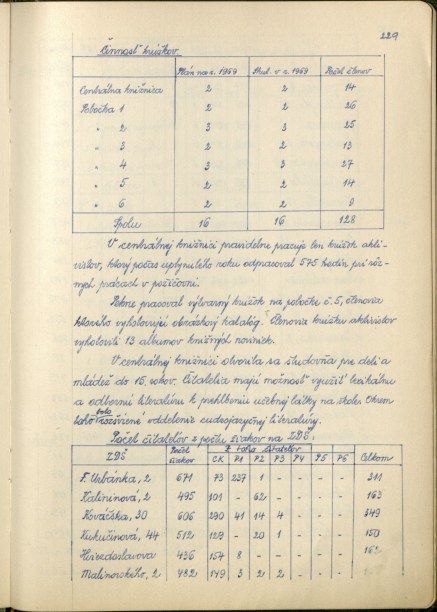 229
Činnosť krúžkov
Plán na r. 1969 Skut. v r. 1969 Počet členov
Centrálna knižnica 2 2 14
Pobočka 1 2 2 26
" 2 3 3 25
" 3 2 2 13
" 4 3 3 27
" 5 2 2 14
" 6 2 2 9
Spolu 16 16 128
V centrálnej knižnici pravidelne pracuje len krúžok akti-
vistov, ktorý počas uplynulého roku odpracoval 575 hodín pri rôz-
nych prácach v požičovni.
Pekne pracoval výtvarný krúžok na pobočke č. 5, členovia
ktorého vyhotovujú obrázkový katalóg. Členovia krúžku aktivistov
vyhotovili 13 albumov knižných noviniek.
V centrálnej knižnici otvorila sa študovňa pre deti a
mládež do 15 rokov. Čitatelia majú možnosť využiť lexikálnu
a odbornú literatúru k prehĺbeniu učebnej látky na škole. Okrem
toho bolo rozšírené oddelenie cudzojazyčnej literatúry.
Počet čitateľov z počtu žiakov na ZDŠ:
ZDŠ Počet žiakov Z toho čitateľov Celkom
CK P1 P2 P3 P4 P5 P6
F. Urbánka, 2 671 73 237 1 - - - - 311
Kalininova, 2 495 101 - 62 - - - - 163
Kováčska, 30 606 290 41 14 4 - - - 349
Kukučínová, 44 512 129 - 20 1 - - - 150
Hviezdoslavova 436 154 8 - - - - - 162
Malinovského, 2 482 149 3 2 2 - - -